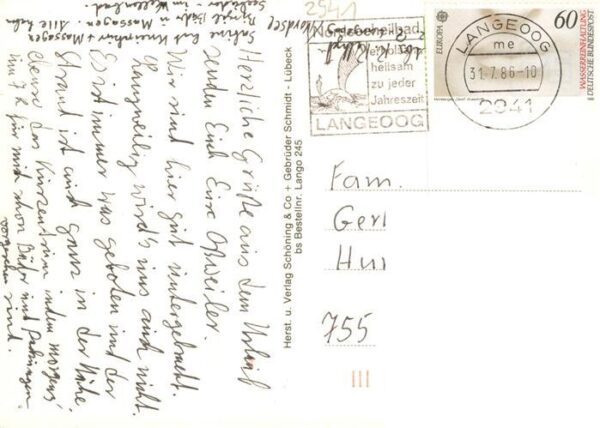 Herzliche Grüße aus dem Urlaub
senden Euch Eure
Wir sind hier gut untergebracht.
Langweilig wird's uns auch nicht.
Es ist immer was geboten und der
Strand ist auch ganz in der Nähe,
ebenso das Kurzentrum indem morgens
um 7 h für mich schon Bäder und Packungen
vorgesehen sind.
Sabine hat + Massagen
Birgit Bäder u Massagen. Alle
Seebäder - im Wellenbad.
Herst. u. Verlag Schöning & Co + Gebrüder Schmidt - Lübeck
bs Bestellnr. Lango 245
2941
Nordseeheilbad
heilsam
zu jeder
Jahreszeit
LANGEOOG
LANGEOOG
me
31.7.86-10
2941
EUROPA
60
WASSERREINHALTUNG
DEUTSCHE BUNDESPOST
Fam.
Gerl
Hui
755